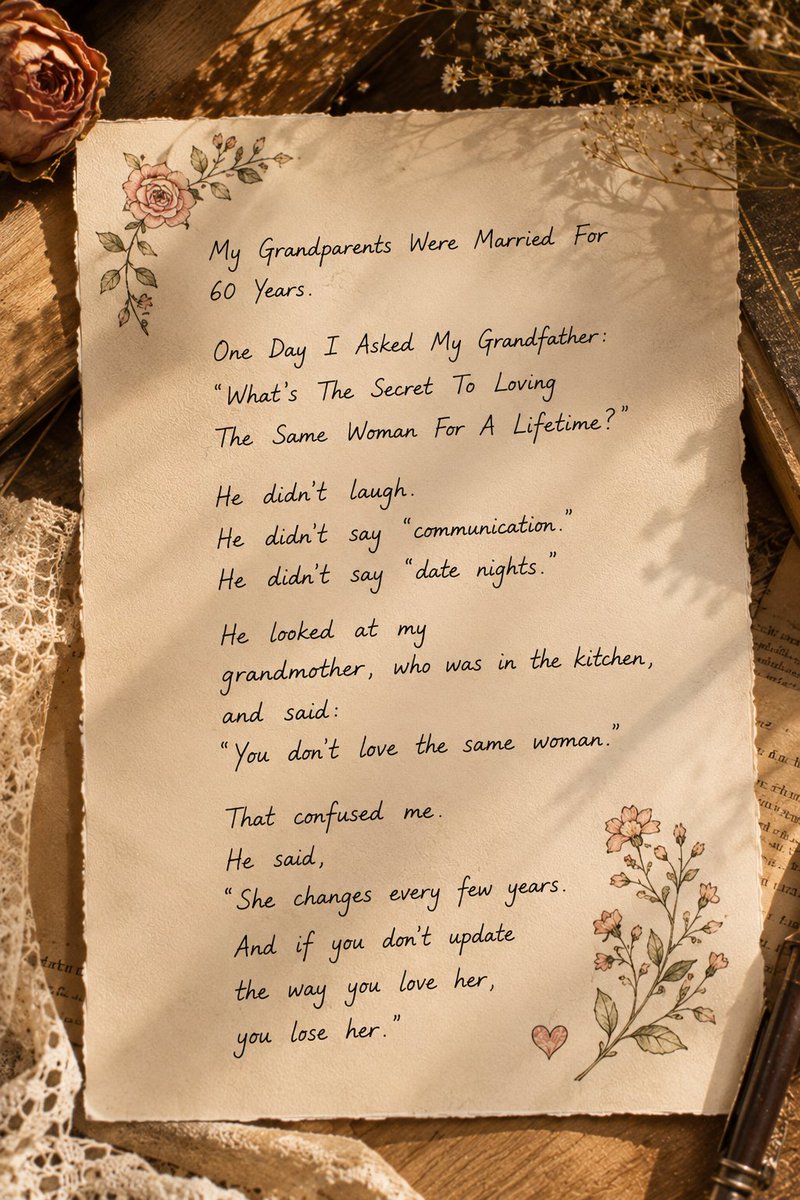 My Grandparents Were Married For
60 Years.
One Day I Asked My Grandfather:
“What's The Secret To Loving
The Same Woman For A Lifetime?”
He didn't laugh.
He didn't say “communication.”
He didn't say “date nights.”
He looked at my
grandmother, who was in the kitchen,
and said:
“You don't love the same woman.”
That confused me.
He said,
“She changes every few years.
And if you don't update
the way you love her,
you lose her.”